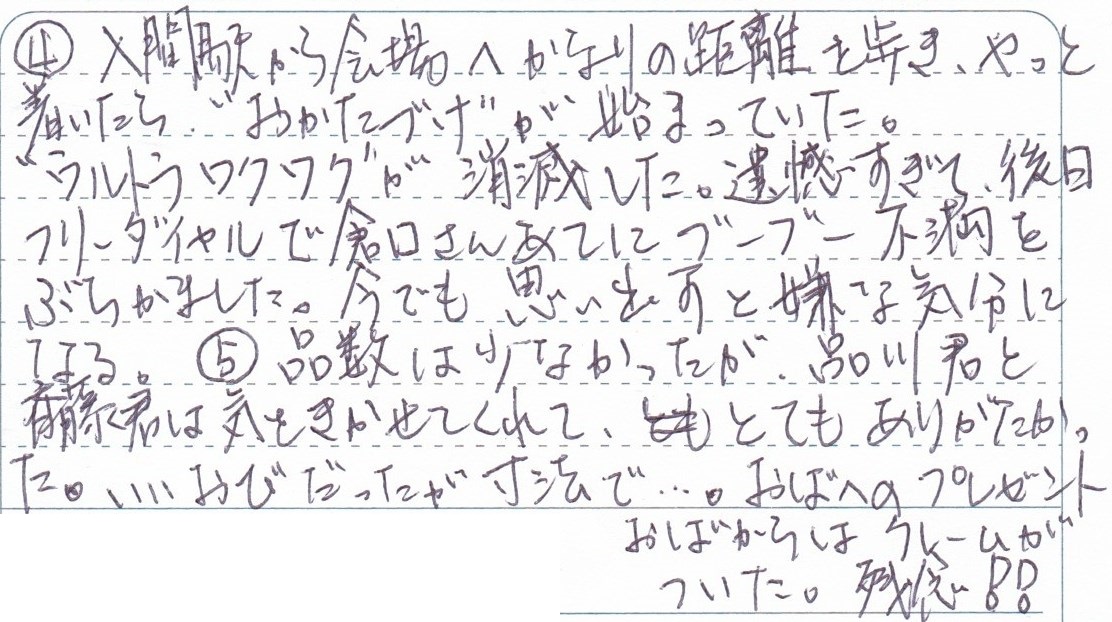 ④ 入間駅から会場へかなりの距離を歩き、やっと
着いたら、"おかたづけ"が始まっていた。
"ウルトラワクワク"が消滅した。遺憾すぎて、後日
フリーダイヤルで倉口さんあてにブーブー不満を
ぶちかました。今でも思い出すと嫌な気分に
なる。 ⑤ 品数は少なかったが、品川君と
斎藤君は気をきかせてくれて、とてもありがたかっ
た。いいおびだったが寸法で…。おばへのプレゼント
おばからはクレームが
ついた。残念!!